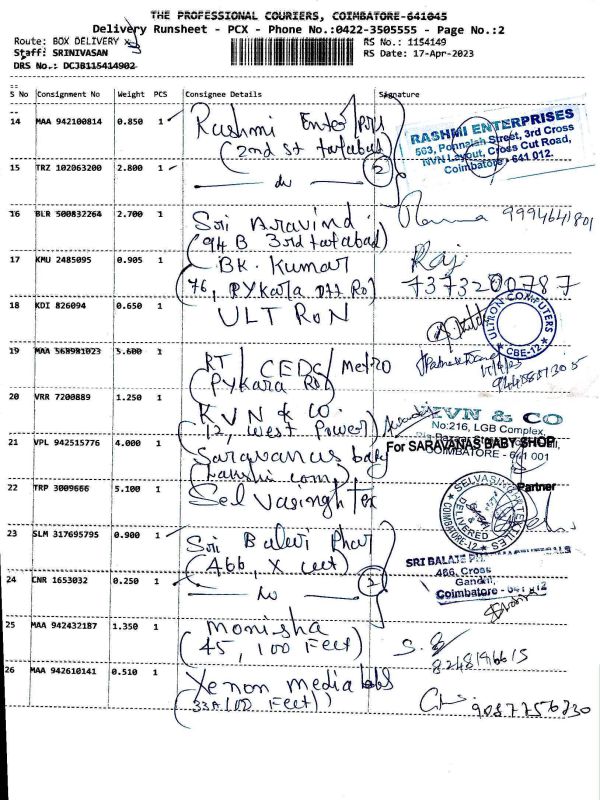 THE PROFESSIONAL COURIERS, COIMBATORE-641045
Delivery Runsheet - PCX - Phone No.:0422-3505555 - Page No.:2
Route: BOX DELIVERY
RS No.: 1154149
Staff: SRINIVASAN
RS Date: 17-Apr-2023
DRS No.: DCJB115414902
S No Consignment No Weight PCS Consignee Details Signature
14 MAA 942100814 0.850 1 Rashmi Enter/pris
(2nd st tatabad)
RASHMI ENTERPRISES
563, Ponnaiah Street, 3rd Cross
NVN Layout, Cross Cut Road,
Coimbatore - 641 012.
15 TRZ 102063200 2.800 1 do 2
16 BLR 500832264 2.700 1 Sri Aravind
(94 B 3rd tatabad)
9994641801
17 KMU 2485095 0.905 1 BK. Kumar
(76, PYkara off Ro)
Raj
7373200787
18 KDI 826094 0.650 1 ULTRON
ULTRON COMPUTERS
CBE-12
19 MAA 568981023 5.600 1 RT/ CEDC/ Metro
(PYkara Ro)
20 VRR 7200889 1.250 1 KVN & CO.
(12, West Power)
KVN & CO
No:216, LGB Complex,
COIMBATORE - 641 001
21 VPL 942515776 4.000 1 Saravanas baby
For SARAVANAS BABY SHOP
Partner
22 TRP 3009666 5.100 1 Selvasingh Tex
DELIVERED
COIMBATORE-12
23 SLM 317695795 0.900 1 Sri Balaji Phar
(466, X cut)
SRI BALAJI
466, Cross
Gandhi
Coimbatore - 641 012
24 CNR 1653032 0.250 1 do 2
25 MAA 942432187 1.350 1 Monisha
(45, 100 Feet)
26 MAA 942610141 0.510 1 Xenon media labs
(33A 100 Feet)